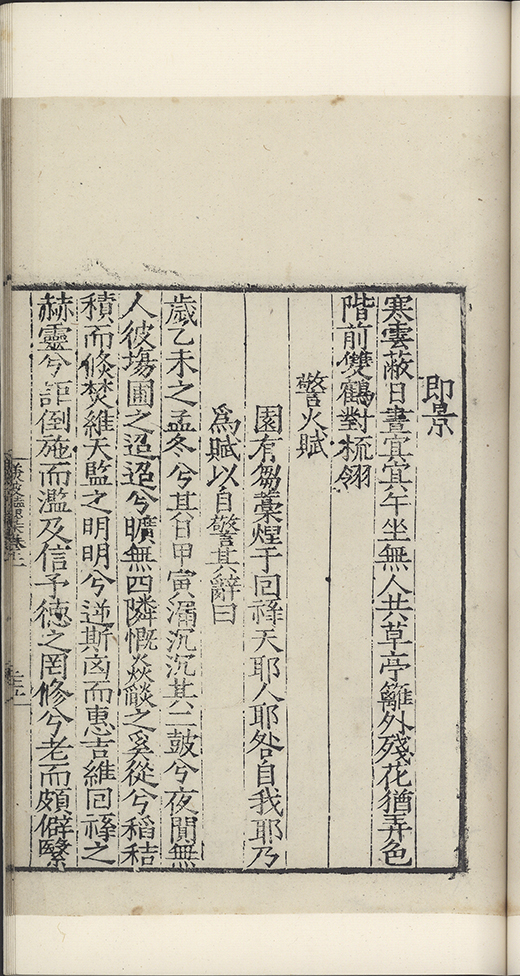 即景
寒雲蔽日晝㝠㝠午坐無人共草亭籬外殘花猶弄色
階前雙鶴對梳翎
警火賦
園有芻藁煋于回祿天耶人耶咎自我耶乃
爲賦以自警其辭曰
歲乙未之孟冬兮其日甲寅漏沉沉其二鼓兮夜閴無
人彼場圃之迢迢兮曠無四隣慨焱燄之奚從兮稻秸
積而倐焚維天監之明明兮逆斯凶而惠吉維回祿之
赫靈兮詎倒施而濫及信予德之罔修兮老而頗僻繄